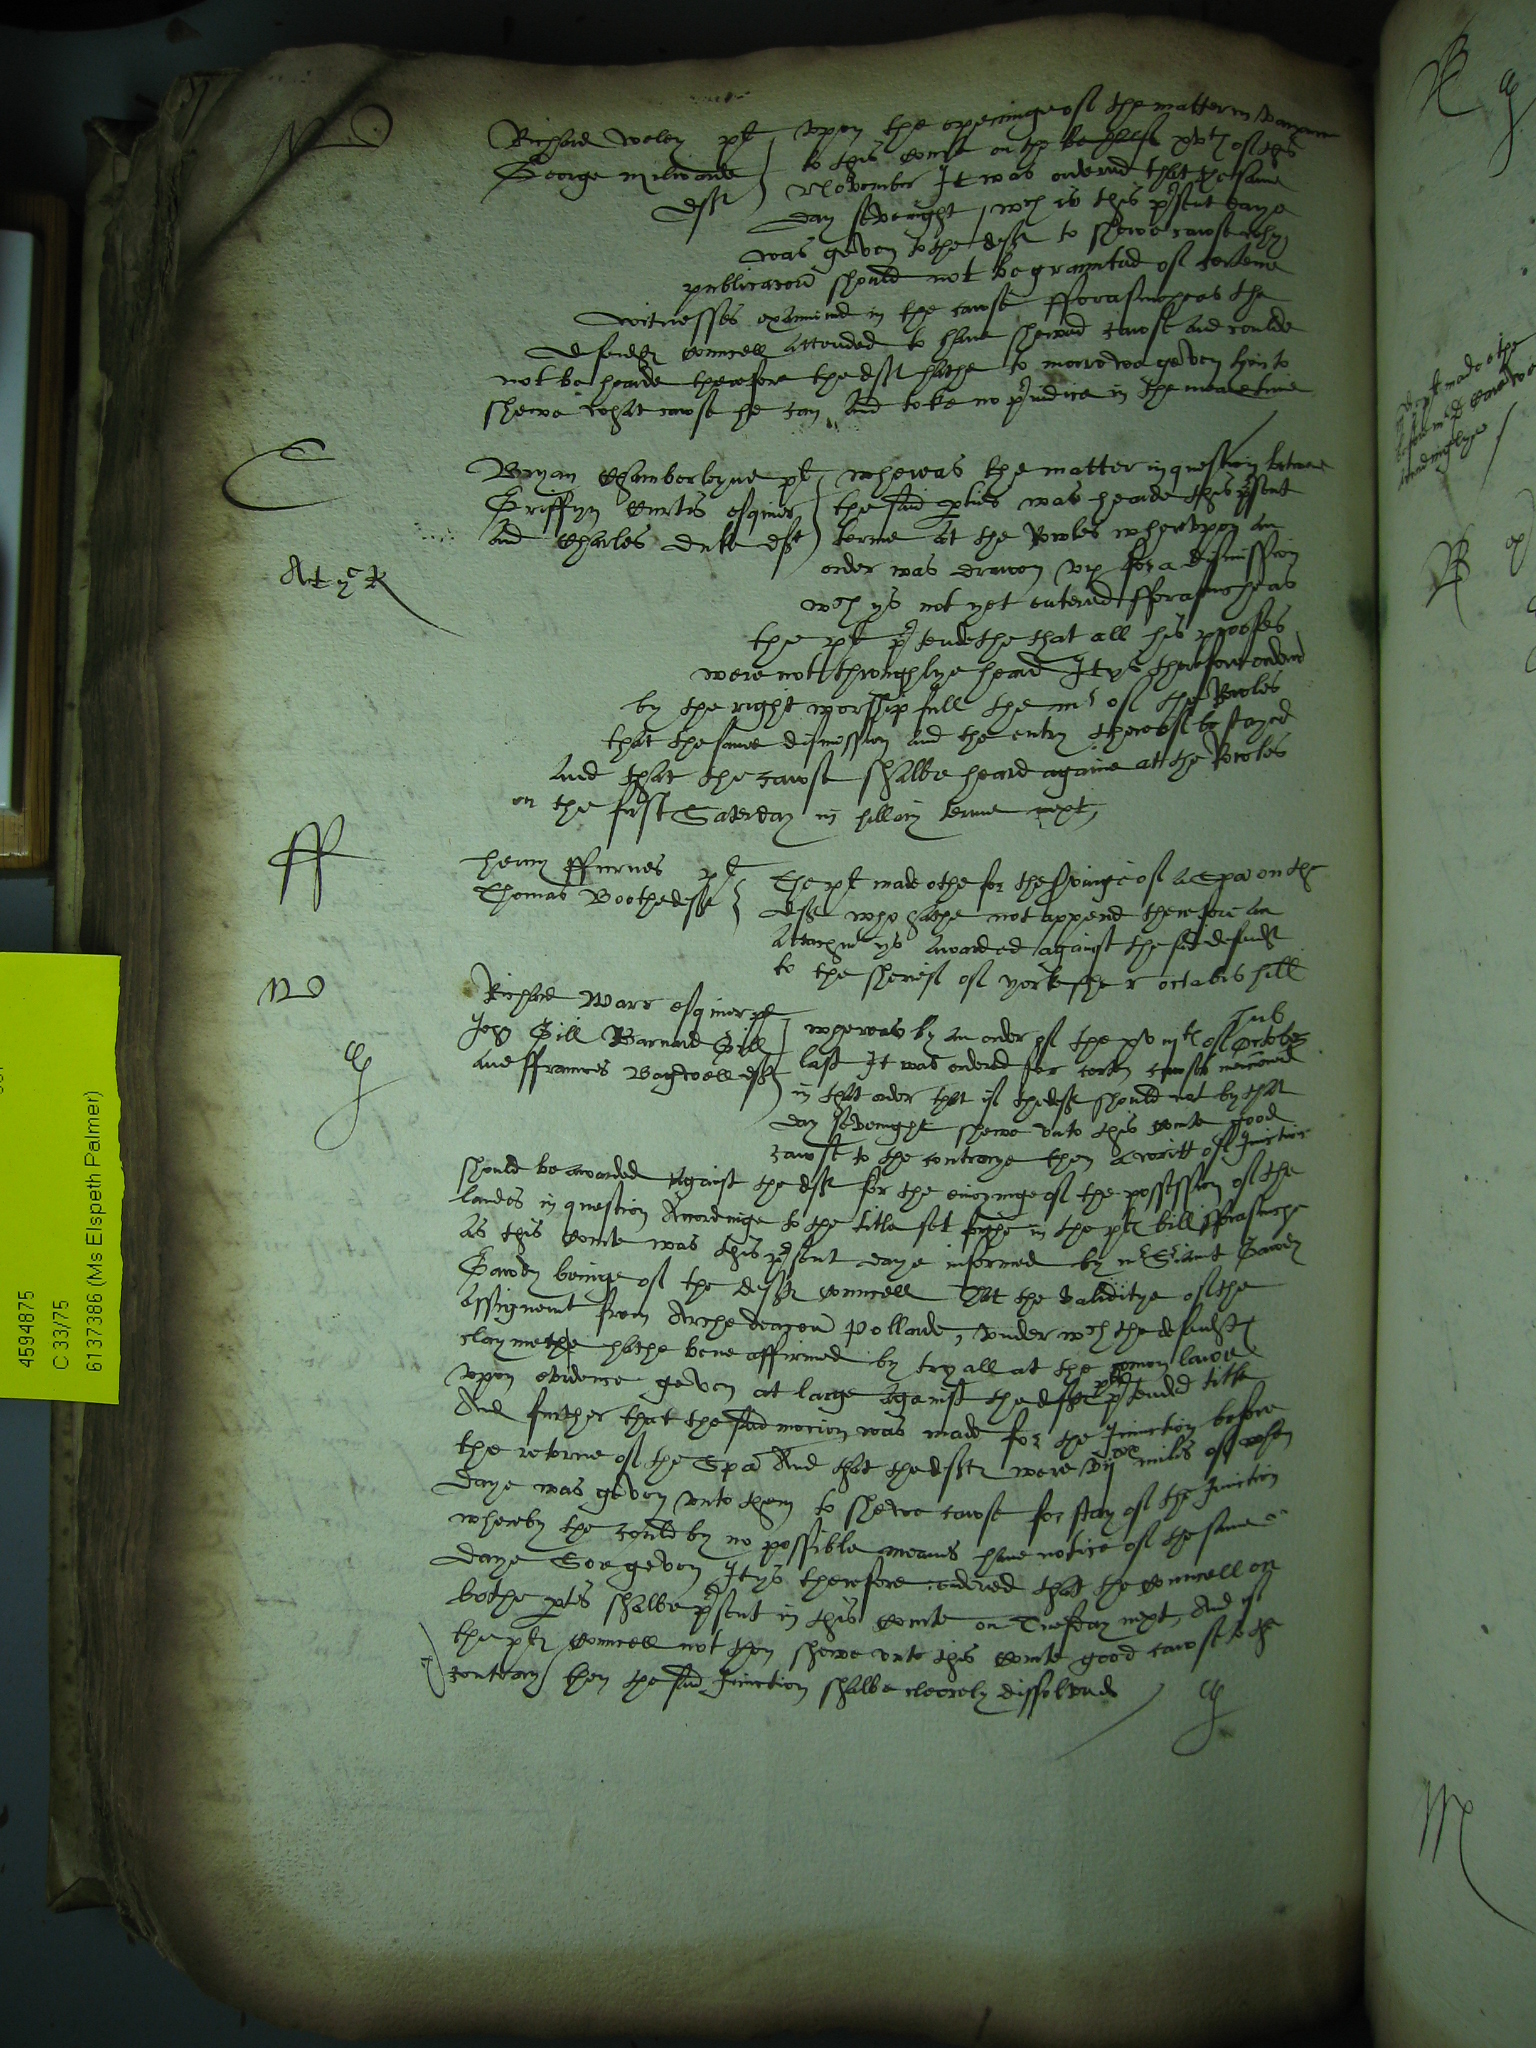 W
Richard Weley pt
George Milwarde
deft
Upon the openinge of the matter in variance
to this Courte on the xvth of this
November It was ordered that the same
day sevenight wch is this pnt daye
was geven to the deft to shewe cawse why
publicacon should not be graunted of certeine
witnesses examined in the cawse fforasmoche as the
defendts Councell attended to have shewed cawse and coulde
not be hearde therefore the deft hathe to morrowe geven him to
shewe what cawse he can And to be no prjudice in the meane time
C
Bryan Chamberleyne pt
Griffyn Curtis esquier
and Charles Duke deft
At ye R
whereas the matter in question betwene
the said pties was hearde this pnsent
terme at the Rowles wherupon an
order was drawen up for a dismission
wch ys not yet entered fforasmoche as
the pt prtendethe that all his prooffes
were not throughlye heard It ys therefore ordered
by the right worshipfull the mr of the Rowles
that the same dismission and the entry therof be stayed
And that the cawse shalbe heard againe att the Rowles
on the first Saterday in hillary terme next
ff
Henry ffurnes pt
Thomas Boothe deft
The pt made othe for the servinge of a Spa on the
deft who hathe not appered therefore an
Attachmt ys awarded against the said defendt
to the sherief of yorkeshe r octabis hill
W
Richard Warr esquier pt
Jon Gill Barnard Gill
and ffraunces Bagwell defts
whereas by an order of the xvmth of October
last It was ordered for certen cawses mencioned
in that order that if the deft should not by that
day sevenight shewe unto this Courte good
cawse to the contrarye then a writt of Iniunction
should be awarded against the deft for the enioyinge of the possession of the
landes in question Accordinge to the title set forthe in the pts bill fforasmoche
as this Courte was this prsent daye informed by mr Sriaunt Gawdy
beinge of the defts Councell That the validitye of the
Assignemt from Archedeacon Pollarde, under wch the defendts
claymethe hathe bene affirmed by tryall at the comon lawe
upon evidence geven at large against the pts prtended title
And further that the said mocion was made for the Iniunction before
the retorne of the Spa And that the defts were vijxx miles of when
daye was geven unto them to shewe cawse for stay of the Iniunction
whereby the could by no possible means have notice of the same
daye Soe geven It ys therefore ordered that the Councell on
bothe ptes shalbe prsent in this Courte on Tuesday next, And if
the pts Councell not then shewe unto this Courte good cawse to the
contrary then the said Iniunction shalbe cleerely dissolved
4594875
C 33/75
6137386 (Ms Elspeth Palmer)